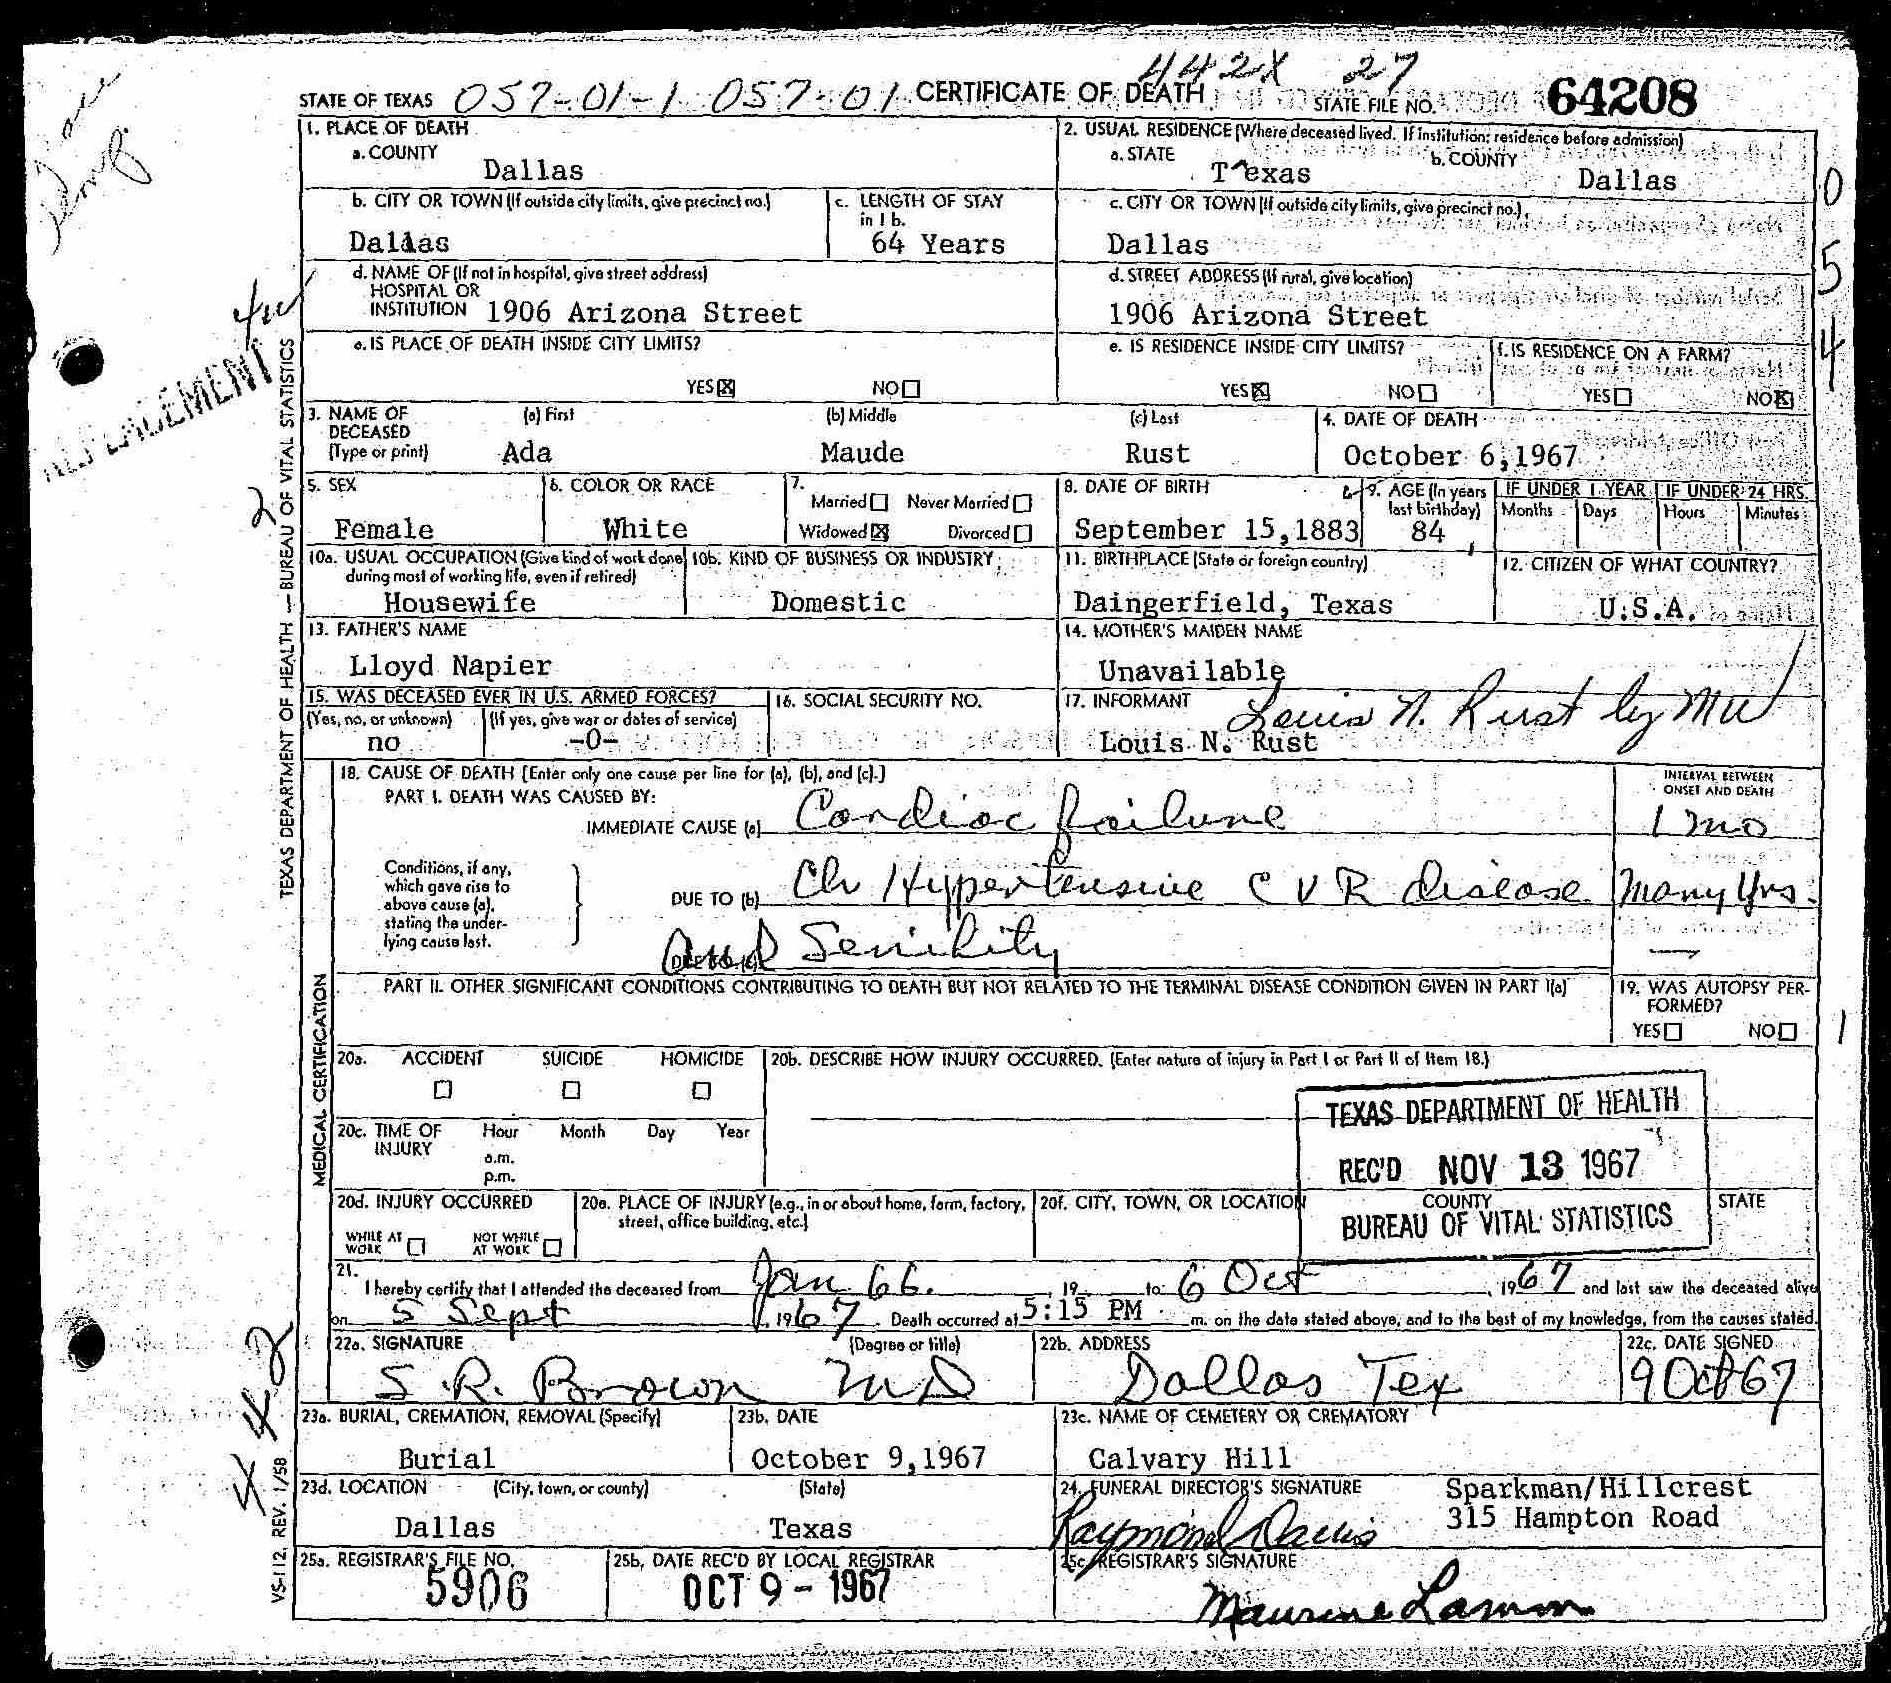 442X 27
STATE OF TEXAS 057-01-1 057-01 CERTIFICATE OF DEATH STATE FILE NO. 64208
1. PLACE OF DEATH
a. COUNTY
Dallas
2. USUAL RESIDENCE (Where deceased lived. If Institution: residence before admission)
a. STATE
Texas
b. COUNTY
Dallas
b. CITY OR TOWN (If outside city limits, give precinct no.)
Dallas
c. LENGTH OF STAY in 1 b.
64 Years
c. CITY OR TOWN (If outside city limits, give precinct no.)
Dallas
d. NAME OF (If not in hospital, give street address)
HOSPITAL OR
INSTITUTION 1906 Arizona Street
d. STREET ADDRESS (If rural, give location)
1906 Arizona Street
e. IS PLACE OF DEATH INSIDE CITY LIMITS?
YES☒ NO☐
e. IS RESIDENCE INSIDE CITY LIMITS?
YES☒ NO☐
f. IS RESIDENCE ON A FARM?
YES☐ NO☒
0
5
4
REPLACEMENT
2
3. NAME OF DECEASED (Type or print)
(a) First (b) Middle (c) Last
Ada Maude Rust
4. DATE OF DEATH
October 6,1967
5. SEX
Female
6. COLOR OR RACE
White
7.
Married☐ Never Married☐
Widowed☒ Divorced☐
8. DATE OF BIRTH
September 15,1883
9. AGE (In years last birthday)
84
IF UNDER 1 YEAR
Months Days
IF UNDER 24 HRS.
Hours Minutes
10a. USUAL OCCUPATION (Give kind of work done during most of working life, even if retired)
Housewife
10b. KIND OF BUSINESS OR INDUSTRY
Domestic
11. BIRTHPLACE (State or foreign country)
Daingerfield, Texas
12. CITIZEN OF WHAT COUNTRY?
U.S.A.
13. FATHER'S NAME
Lloyd Napier
14. MOTHER'S MAIDEN NAME
Unavailable
15. WAS DECEASED EVER IN U.S. ARMED FORCES?
(Yes, no, or unknown) (If yes, give war or dates of service)
no -0-
16. SOCIAL SECURITY NO.
17. INFORMANT
Louis N. Rust by MW
Louis N. Rust
TEXAS DEPARTMENT OF HEALTH — BUREAU OF VITAL STATISTICS
MEDICAL CERTIFICATION
18. CAUSE OF DEATH [Enter only one cause per line for (a), (b), and (c).]
PART I. DEATH WAS CAUSED BY:
IMMEDIATE CAUSE (a) Cardiac failure
INTERVAL BETWEEN ONSET AND DEATH
1 mo
Conditions, if any, which gave rise to above cause (a), stating the underlying cause last.
DUE TO (b) Ch Hypertensive C V R disease many yrs.
and Senility —
PART II. OTHER SIGNIFICANT CONDITIONS CONTRIBUTING TO DEATH BUT NOT RELATED TO THE TERMINAL DISEASE CONDITION GIVEN IN PART I(a)
19. WAS AUTOPSY PERFORMED?
YES☐ NO☐
1
20a. ACCIDENT SUICIDE HOMICIDE
☐ ☐ ☐
20b. DESCRIBE HOW INJURY OCCURRED. (Enter nature of injury in Part I or Part II of Item 18.)
20c. TIME OF INJURY
Hour Month Day Year
a.m.
p.m.
TEXAS DEPARTMENT OF HEALTH
REC'D NOV 13 1967
BUREAU OF VITAL STATISTICS
20d. INJURY OCCURRED
WHILE AT WORK ☐ NOT WHILE AT WORK ☐
20e. PLACE OF INJURY (e.g., in or about home, farm, factory, street, office building, etc.)
20f. CITY, TOWN, OR LOCATION COUNTY STATE
21.
I hereby certify that I attended the deceased from Jan 66. , 19 to 6 Oct , 1967 and last saw the deceased alive
on 5 Sept , 1967 . Death occurred at 5:15 PM m. on the date stated above, and to the best of my knowledge, from the causes stated.
22a. SIGNATURE (Degree or title)
S. R. Brown MD
22b. ADDRESS
Dallas Tex
22c. DATE SIGNED
9 Oct 67
442
23a. BURIAL, CREMATION, REMOVAL (Specify)
Burial
23b. DATE
October 9,1967
23c. NAME OF CEMETERY OR CREMATORY
Calvary Hill
23d. LOCATION (City, town, or county) (State)
Dallas Texas
24. FUNERAL DIRECTOR'S SIGNATURE
Raymond Davis
Sparkman/Hillcrest
315 Hampton Road
25a. REGISTRAR'S FILE NO.
5906
25b. DATE REC'D BY LOCAL REGISTRAR
OCT 9 - 1967
25c. REGISTRAR'S SIGNATURE
Maurine Lamm
VS-112, REV. 1/58